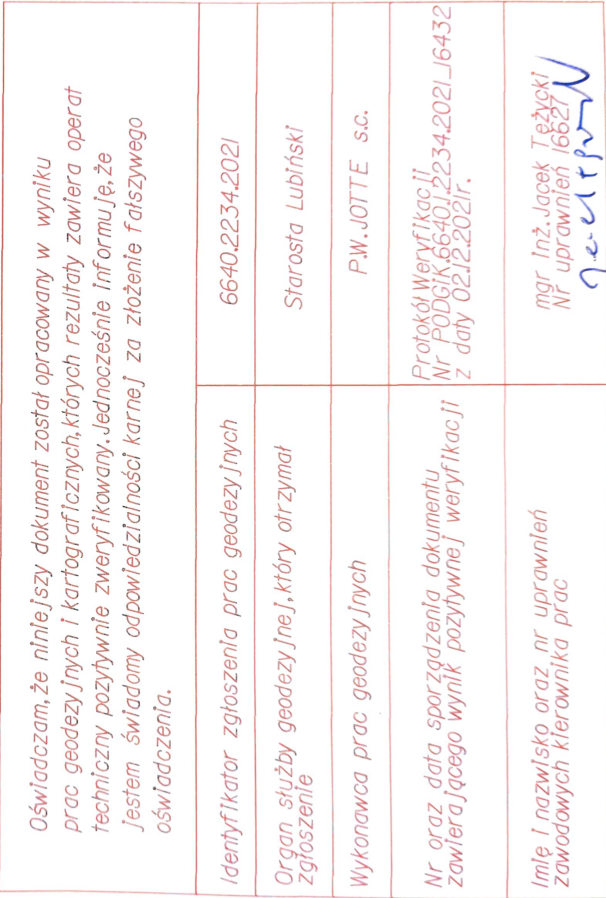 Oświadczam,że niniejszy dokument został opracowany w wyniku
prac geodezyjnych i kartograficznych,których rezultaty zawiera operat
techniczny pozytywnie zweryfikowany.Jednocześnie informuję,że
jestem świadomy odpowiedzialności karnej za złożenie fałszywego
oświadczenia.
Identyfikator zgłoszenia prac geodezyjnych
6640.2234.2021
Organ służby geodezyjnej,który otrzymał
zgłoszenie
Starosta Lubiński
Wykonawca prac geodezyjnych
P.W.JOTTE s.c.
Nr oraz data sporządzenia dokumentu
zawierającego wynik pozytywnej weryfikacji
Protokół Weryfikacji
Nr PODGIK.6640.1.2234.2021_16432
z daty 02.12.2021r.
Imię i nazwisko oraz nr uprawnień
zawodowych kierownika prac
mgr inż.Jacek Tężycki
Nr uprawnień 16627